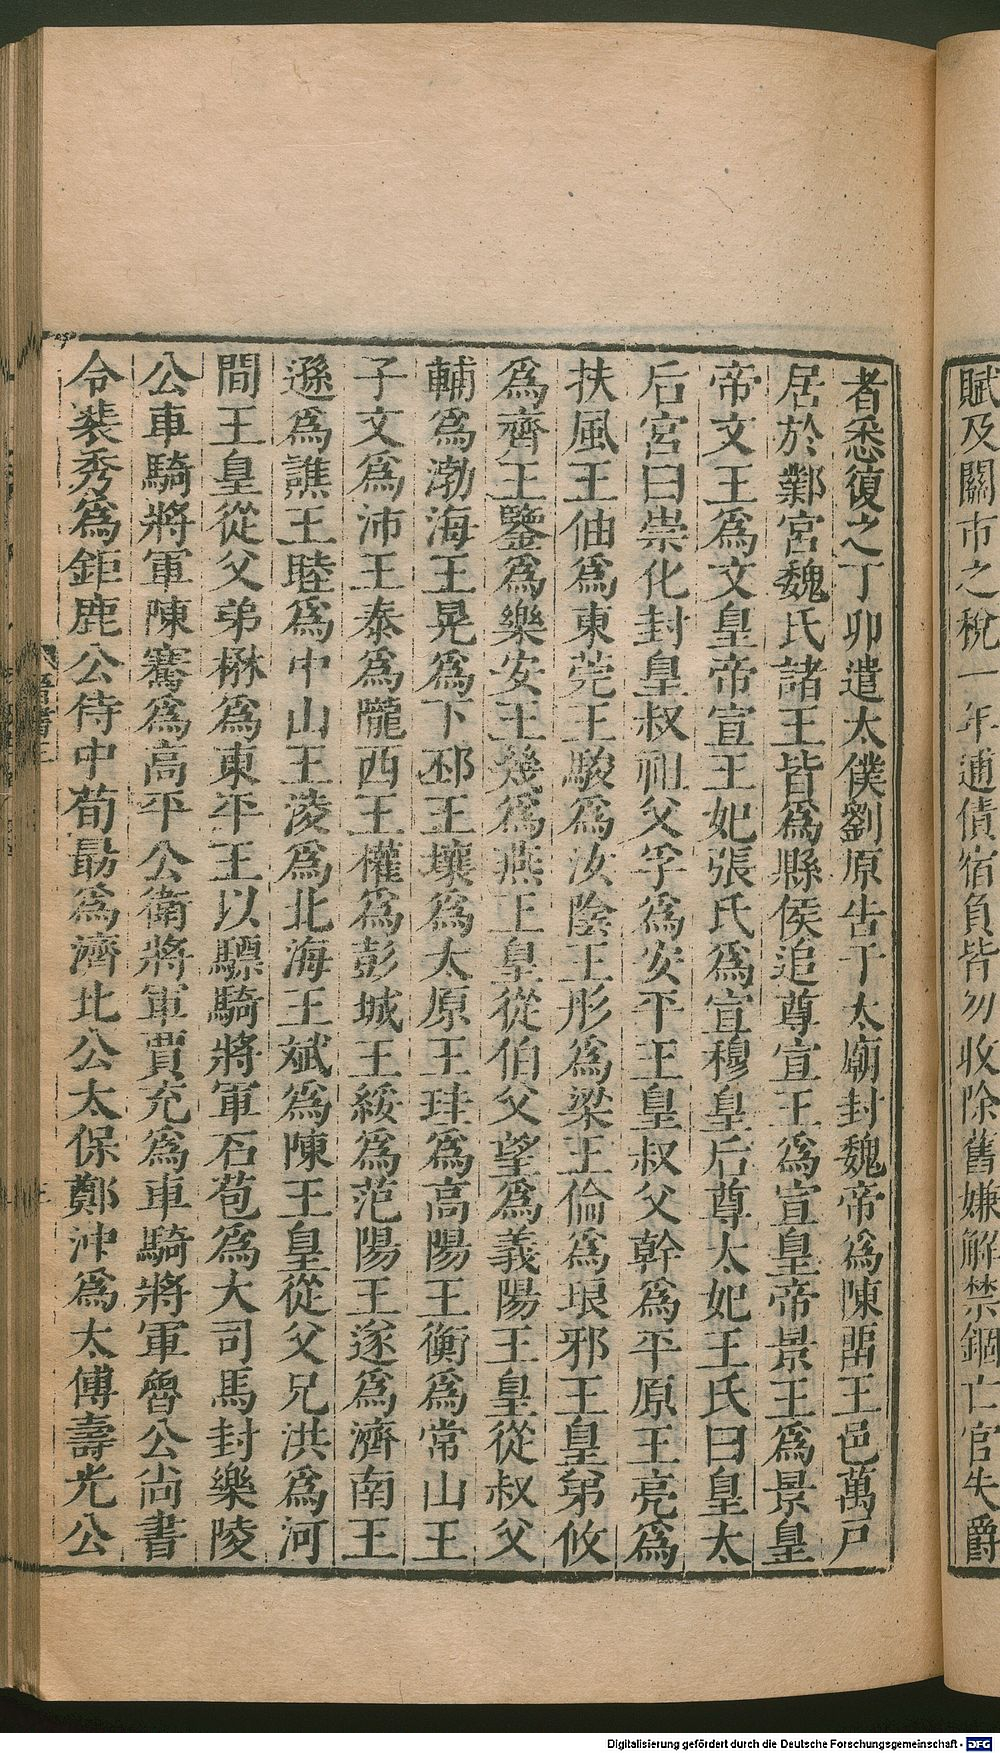 賦及關市之稅一年逋債宿負皆勿收除舊嫌解禁錮亡官失爵
者悉復之丁卯遣太僕劉原告于太廟封魏帝爲陳畱王邑萬戸
居於鄴宮魏氏諸王皆爲縣侯追尊宣王爲宣皇帝景王爲景皇
帝文王爲文皇帝宣王妃張氏爲宣穆皇后尊太妃王氏曰皇太
后宮曰崇化封皇叔祖父孚爲安平王皇叔父幹爲平原王亮爲
扶風王伷爲東莞王駿爲汝陰王肜爲梁王倫爲琅邪王皇弟攸
爲齊王鑒爲樂安王幾爲燕王皇從伯父望爲義陽王皇從叔父
輔爲渤海王晃爲下邳王壞爲太原王珪爲高陽王衡爲常山王
子文爲沛王泰爲隴西王權爲彭城王綏爲范陽王遂爲濟南王
遜爲譙王睦爲中山王淩爲北海王斌爲陳王皇從父兄洪爲河
間王皇從父弟楙爲東平王以驃騎將軍石苞爲大司馬封樂陵
公車騎將軍陳騫爲高平公衛將軍賈充爲車騎將軍魯公尚書
令裴秀爲鉅鹿公侍中荀勗爲濟北公太保鄭沖爲太傅壽光公
晉書三
Digitalisierung gefördert durch die Deutsche Forschungsgemeinschaft - DFG